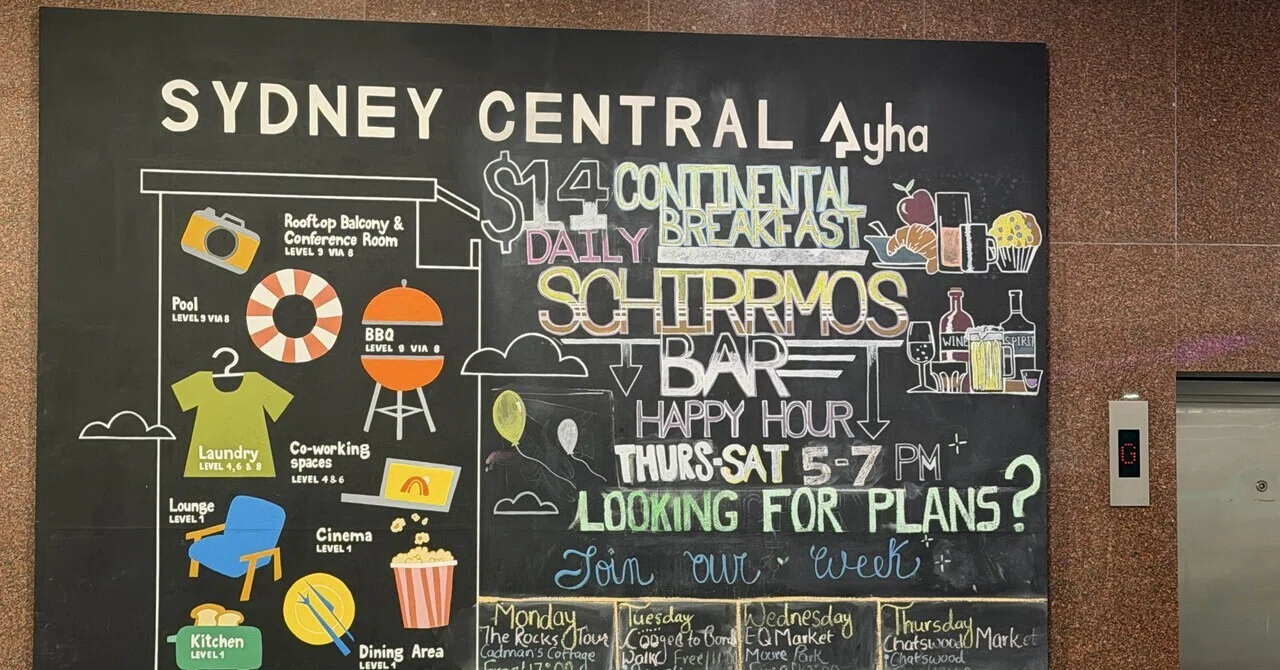 SYDNEY CENTRAL Ayha
Rooftop Balcony &
Conference Room
LEVEL 9 VIA 8
Pool
LEVEL 9 VIA 8
BBQ
LEVEL 9 VIA 8
Laundry
LEVEL 4, 6 & 8
Co-working
spaces
LEVEL 4 & 6
Lounge
LEVEL 1
Cinema
LEVEL 1
Kitchen
LEVEL 1
Dining Area
LEVEL 1
$14 CONTINENTAL
BREAKFAST
DAILY
SCHIRRMOS
BAR
WINE
SPIRIT
HAPPY HOUR
THURS-SAT 5-7 PM
LOOKING FOR PLANS?
Join our week
Monday
The Rocks Tour
Cadman's Cottage
Tuesday
Coogee to Bondi
Walk Free
Wednesday
EQ Market
Moore Park
Thursday
Chatswood Market
Chatswood
G